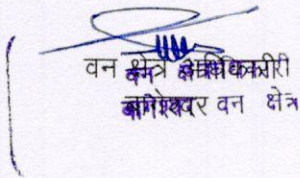 वन क्षेत्र अधिकारी
बागेश्वर वन क्षेत्र